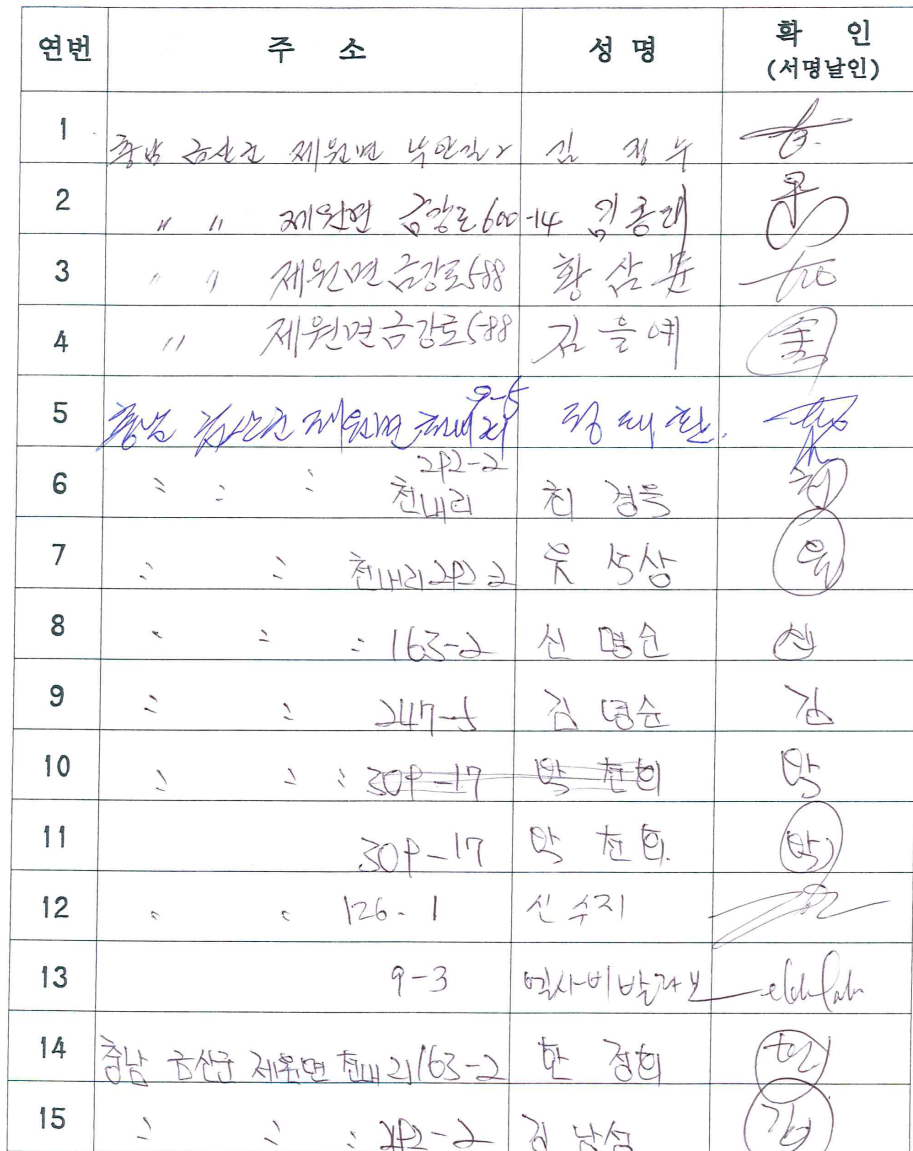 연번 주 소 성 명 확 인
(서명날인)
1 충남 금산군 제원면 김 정수
2 〃 〃 제원면 금강로 600-14 김종대
3 〃 〃 제원면 금강로 588 황삼분
4 〃 제원면 금강로 588 김을예
9-5
5 충남 금산군 제원면 천내리
292-2
6 〃 〃 〃 천내리 경욱
7 〃 〃 천내리 292-2
8 〃 〃 〃 163-2 신명순
9 〃 〃 247-5 김명순 김
10 〃 〃 〃 309-17 박천희 박
11 309-17 박천희 박
12 〃 〃 126-1 신수지
13 9-3
14 충남 금산군 제원면 천내리 163-2 한정희
15 〃 〃 〃 292-2 김남섭